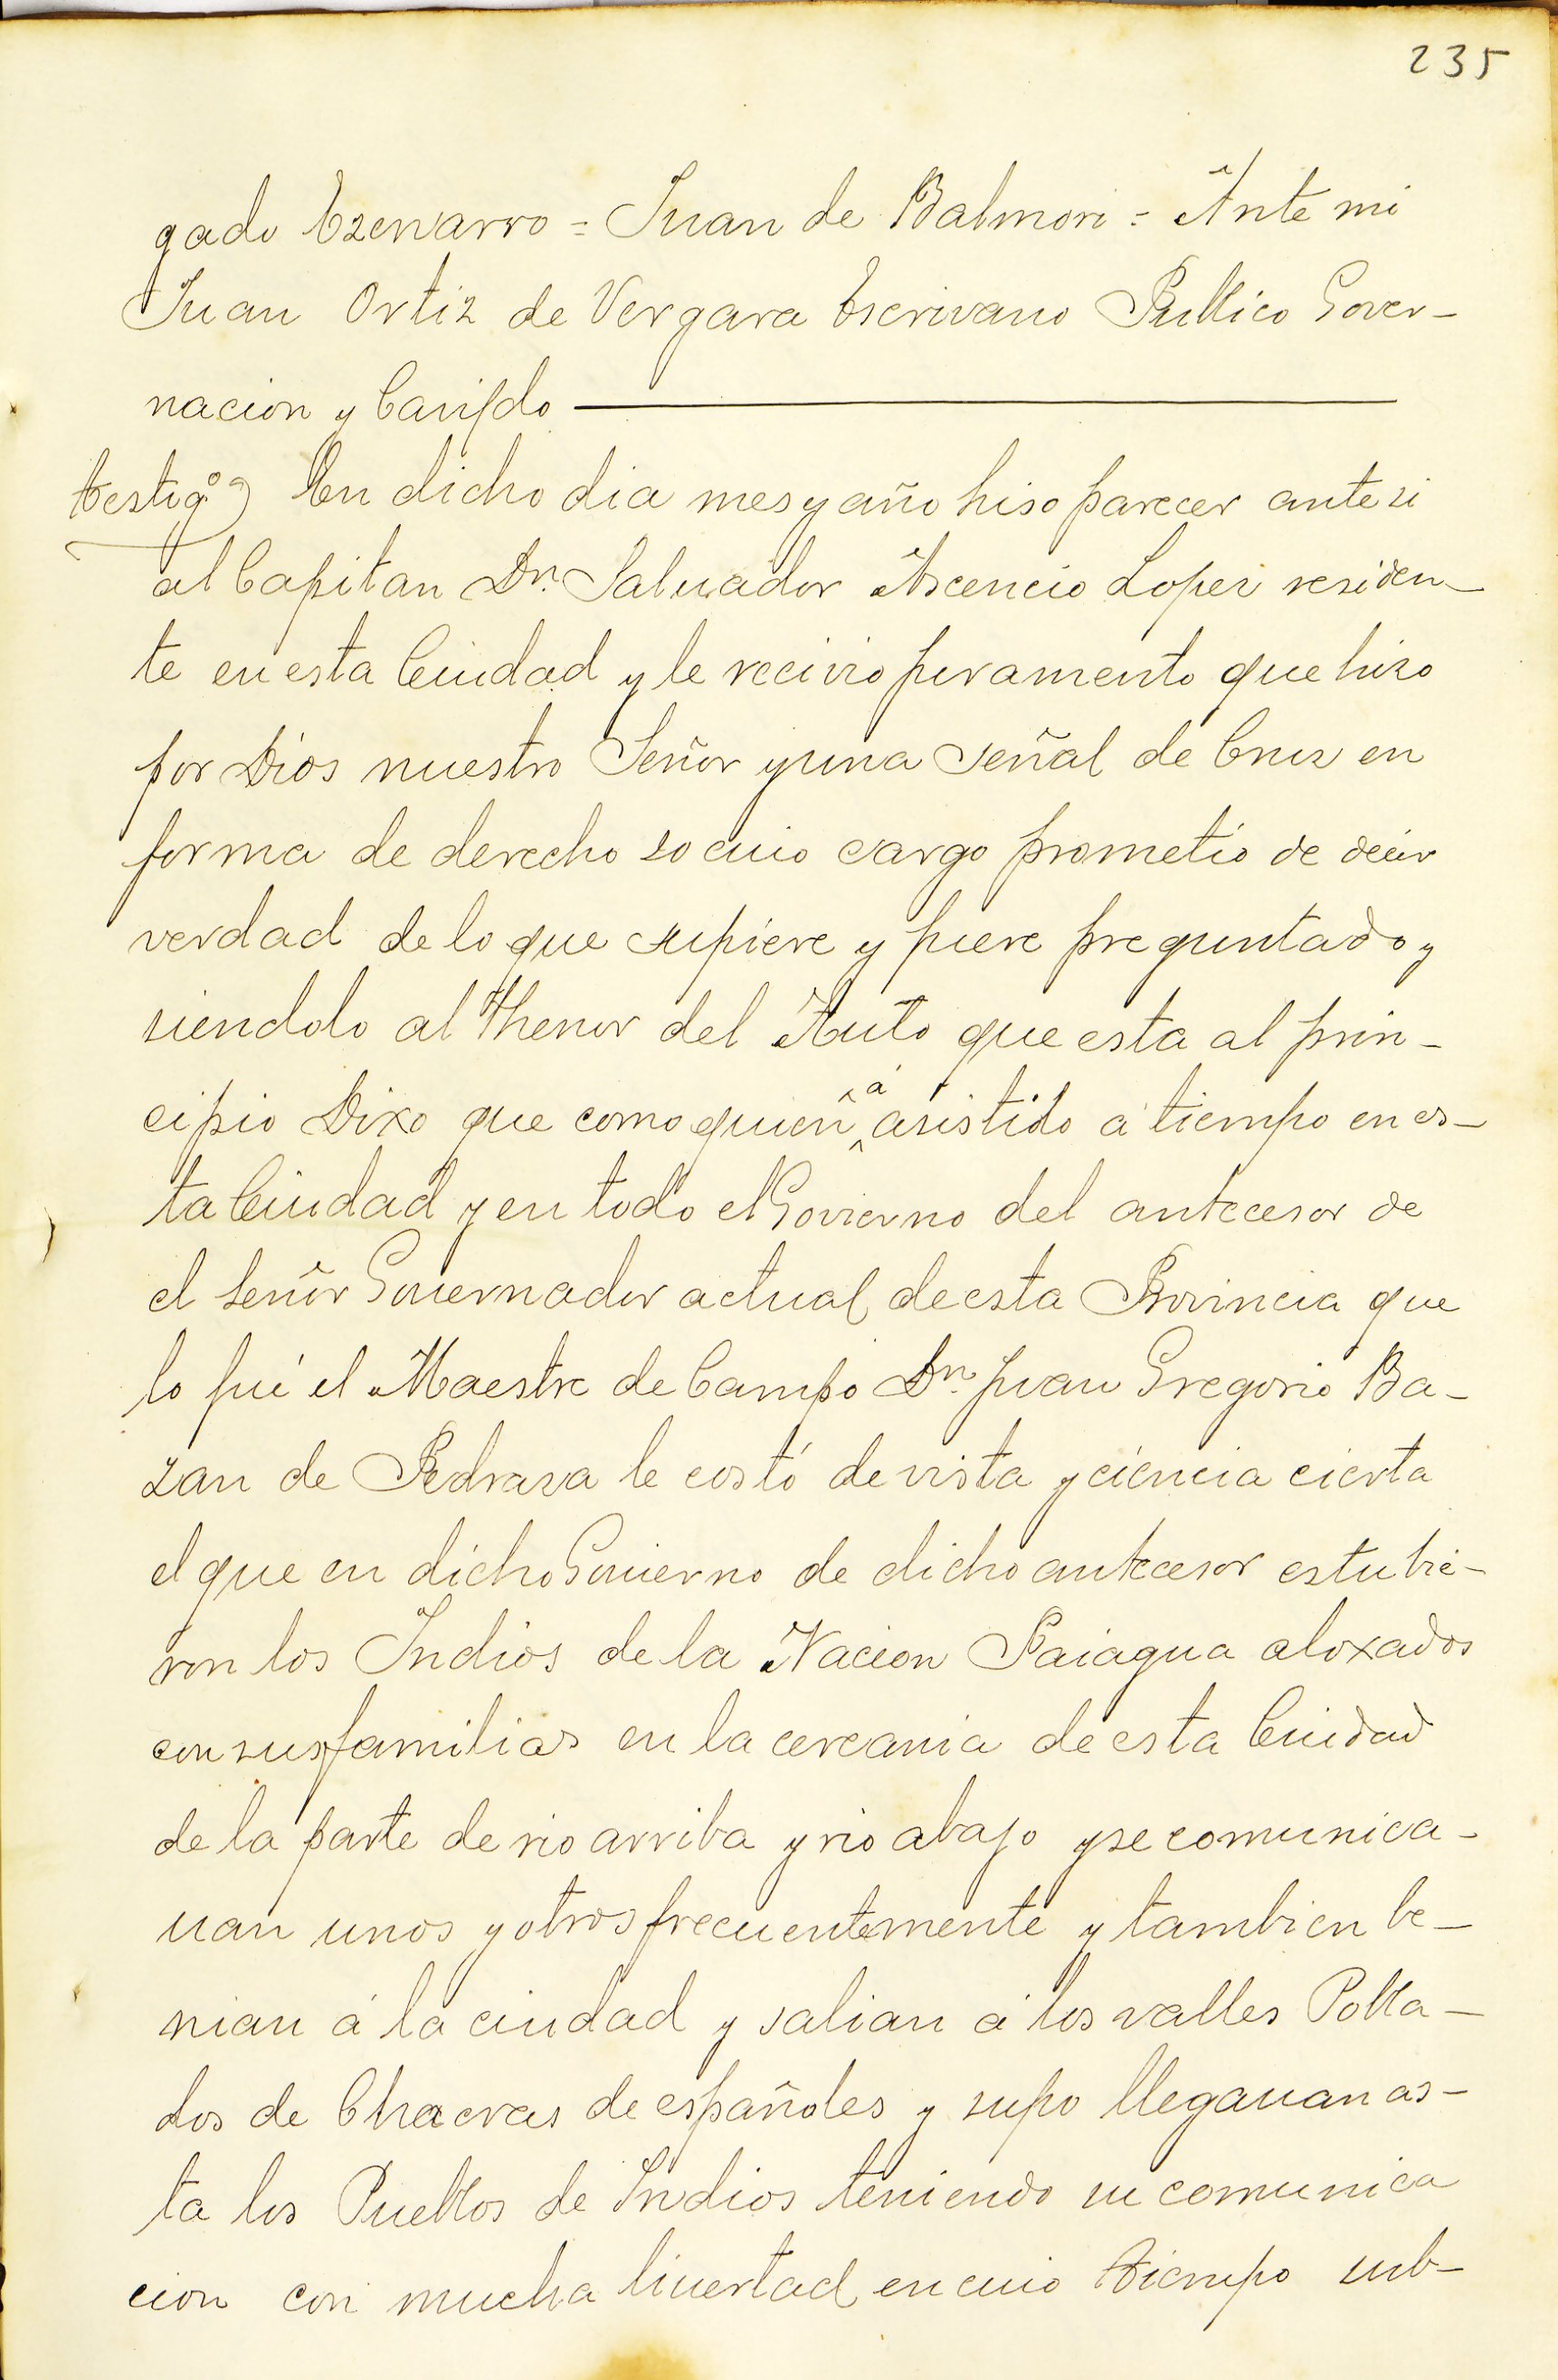 235
gado Ezenarro = Juan de Balmori = Ante mi
Juan Ortiz de Vergara Escrivano Publico Gover-
nacion y Cavildo
testigo 9 En dicho dia mes y año hiso parecer ante si
al Capitan Dn. Saluador Ascencio Lopez residen-
te en esta Ciudad y le recivio juramento que hizo
por Dios nuestro Señor y una señal de Cruz en
forma de derecho so cuio cargo prometio de decir
verdad de lo que supiere y fuere preguntado y
siendolo al Thenor del Auto que esta al prin-
cipio Dixo que como quien á asistido á tiempo en es-
ta Ciudad y en todo el Govierno del antecesor de
el señor Gouernador actual de esta Provincia que
lo fué el Maestre de Campo Dn. Juan Gregorio Ba-
zan de Pedraza le costó de vista y ciencia cierta
el que en dicho Gouierno de dicho antecesor estubie-
ron los Indios de la Nacion Paiagua aloxados
con sus familias en la cercania de esta Ciudad
de la parte de rio arriba y rio abajo y se comunica-
uan unos y otros frecuentemente y tambien be-
nian á la ciudad y salian á los valles Pobla-
dos de Chacras de españoles y supo llegauan as-
ta los Pueblos de Indios teniendo su comunica
cion con mucha liuertad en cuio tiempo sub-